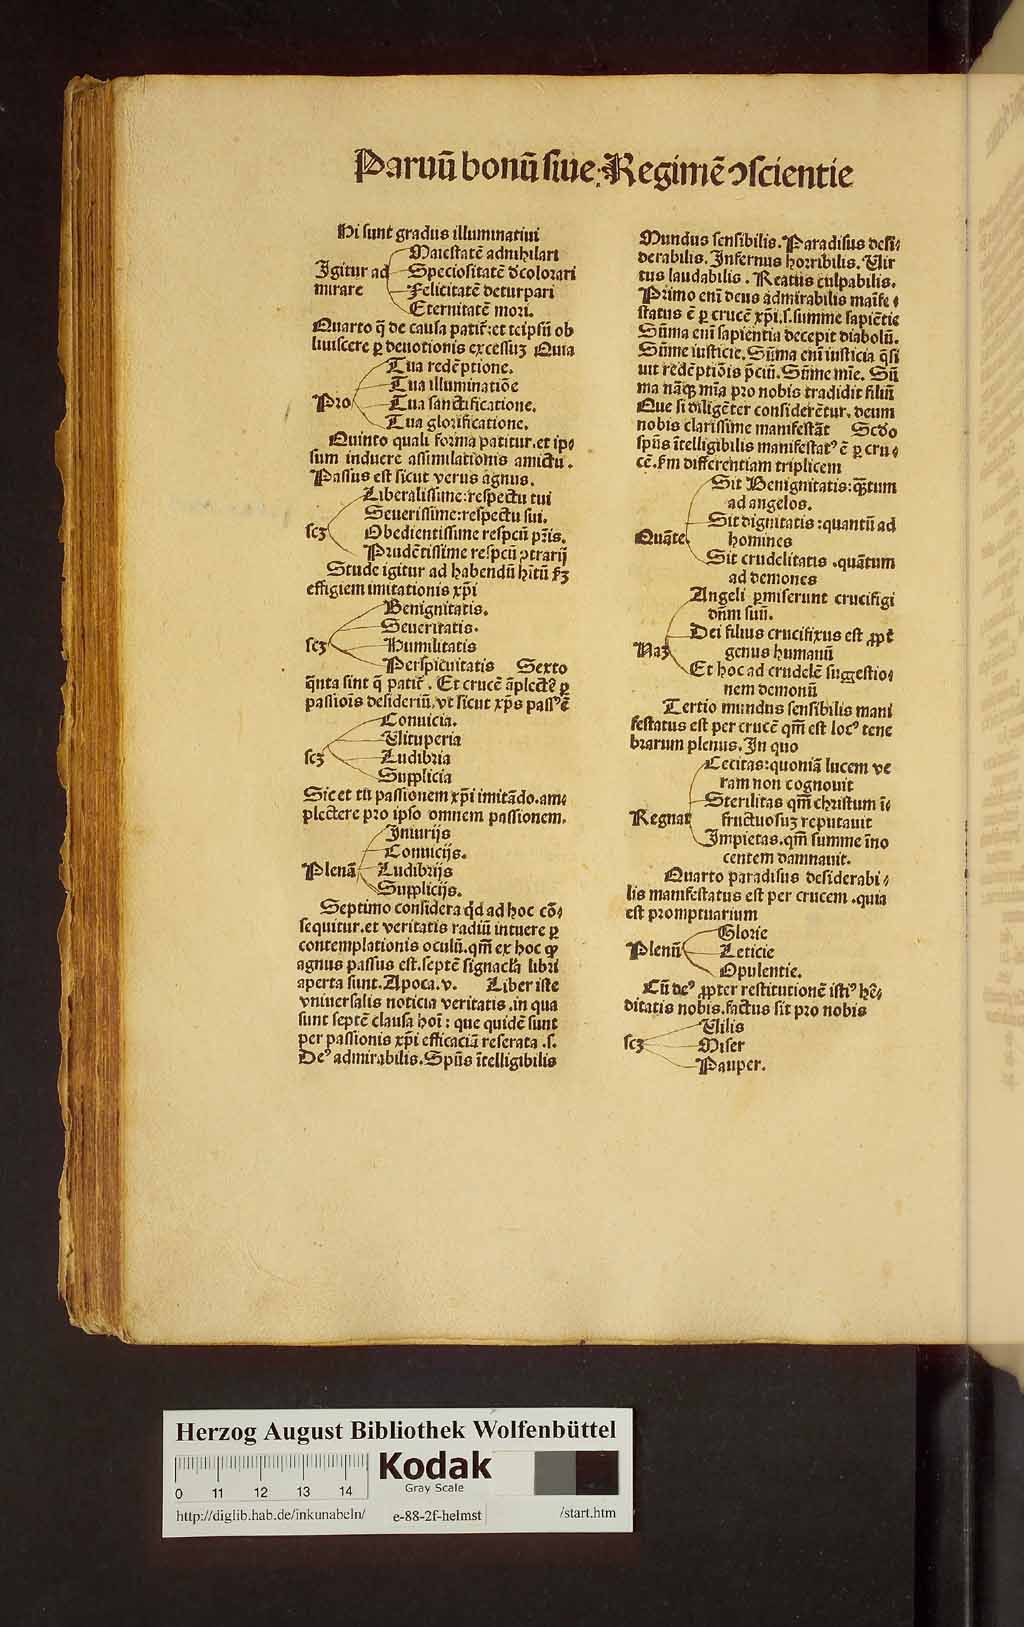 Paruū bonū siue Regimē ↄscientie
Hi sunt gradus illuminatiui
Maiestatē adnihilari
Igitur ad
Speciositatē dcolorari
mirare
Felicitatē deturpari
Eternitatē mori.
Quarto q̄ de causa patit᷑: et teipsū ob
liuiscere p̱ deuotionis excessuꝫ Quia
Tua redēptione.
Tua illuminatiōe
Pro
Tua sanctificatione.
Tua glorificatione.
Quinto quali forma patitur. et ip⸗
sum induere assimilationis amictu.
Passus est sicut verus agnus.
Liberalissime: respectu tui
Seuerissime: respectu sui.
scꝫ
Obedientissime respcū pr̄is.
Prudētissime respcū ↄtrarij
Stude igitur ad habendū hītū ẜꝫ
effigiem imitationis xp̄i
Benignitatis.
Seueritatis.
scꝫ
Humilitatis
Perspicuitatis Sexto
q̄nta sint q̄ patit᷑. Et crucē āplecte᷑ p̱
passiōis desideriū. vt sicut xp̄s passꝰ ē
Conuicia.
Vituperia
scꝫ
Ludibria
Supplicia
Sic et tu passionem xp̄i imitādo. am⸗
plectere pro ipso omnem passionem.
Iniurijs
Conuicijs.
Plenā
Ludibrijs
Supplicijs.
Septimo considera qd ad hoc cō⸗
sequitur. et veritatis radiū intuere p̱
contemplationis oculū. qm̄ ex hoc ꝙ
agnus passus est. septē signacl'a libri
aperta sunt. Apoca. v. Liber iste
vniuersalis noticia veritatis. in qua
sunt septē clausa hoī: que quidē sunt
per passionis xp̄i efficaciā reserata .s.
Deꝰ admirabilis. Spūs ītelligibilis
Mundus sensibilis. Paradisus desi⸗
derabilis. Infernus horribilis. Vir
tus laudabilis. Reatus culpabilis.
Primo enī deus admirabilis maīfe⸗
status ē p̱ crucē xp̄i. s. summe sapiētie
Sūma enī sapientia decepit diabolū.
Sūme iusticie. Sūma enī iusticia q̄si
uit redēptiōis p̄ciū. Sūme mīe. Sū
ma nāqꝫ mīa pro nobis tradidit filiū
Que si diligēter considerētur. deum
nobis clarissime manifestāt Scdo
spūs ītelligibilis manifestatꝰ ē p̱ cru⸗
cē. ẜm differentiam triplicem
Sit Benignitatis: q̄tum
ad angelos.
Sit dignitatis: quantū ad
Quāte.
homines
Sit crudelitatis. quātum
ad demones
Angeli p̱miserunt crucifigi
dn̄m suū.
Dei filius crucifixus est ꝓpt᷑
Naꝫ
genus humanū
Et hoc ad crudelē suggestio⸗
nem demonū
Tertio mundus sensibilis mani
festatus est per crucē qm̄ est locꝰ tene
brarum plenus. In quo
Cecitas: quoniā lucem ve
ram non cognouit
Sterilitas qm̄ christum ī⸗
Regnat
fructuosuꝫ reputauit
Impietas. qm̄ summe īno
centem damnauit.
Quarto paradisus desiderabi⸗
lis manifestatus est per crucem. quia
est promptuarium
Glorie
Plenū
Leticie
Opulentie.
Cū deꝰ ꝓpter restitutionē istiꝰ hē⸗
ditatis nobis. factus sit pro nobis
Vilis
scꝫ
Miser
Pauper.
Herzog August Bibliothek Wolfenbüttel
0 11 12 13 14
Kodak
Gray Scale
http://diglib.hab.de/inkunabeln/ e-88-2f-helmst /start.htm